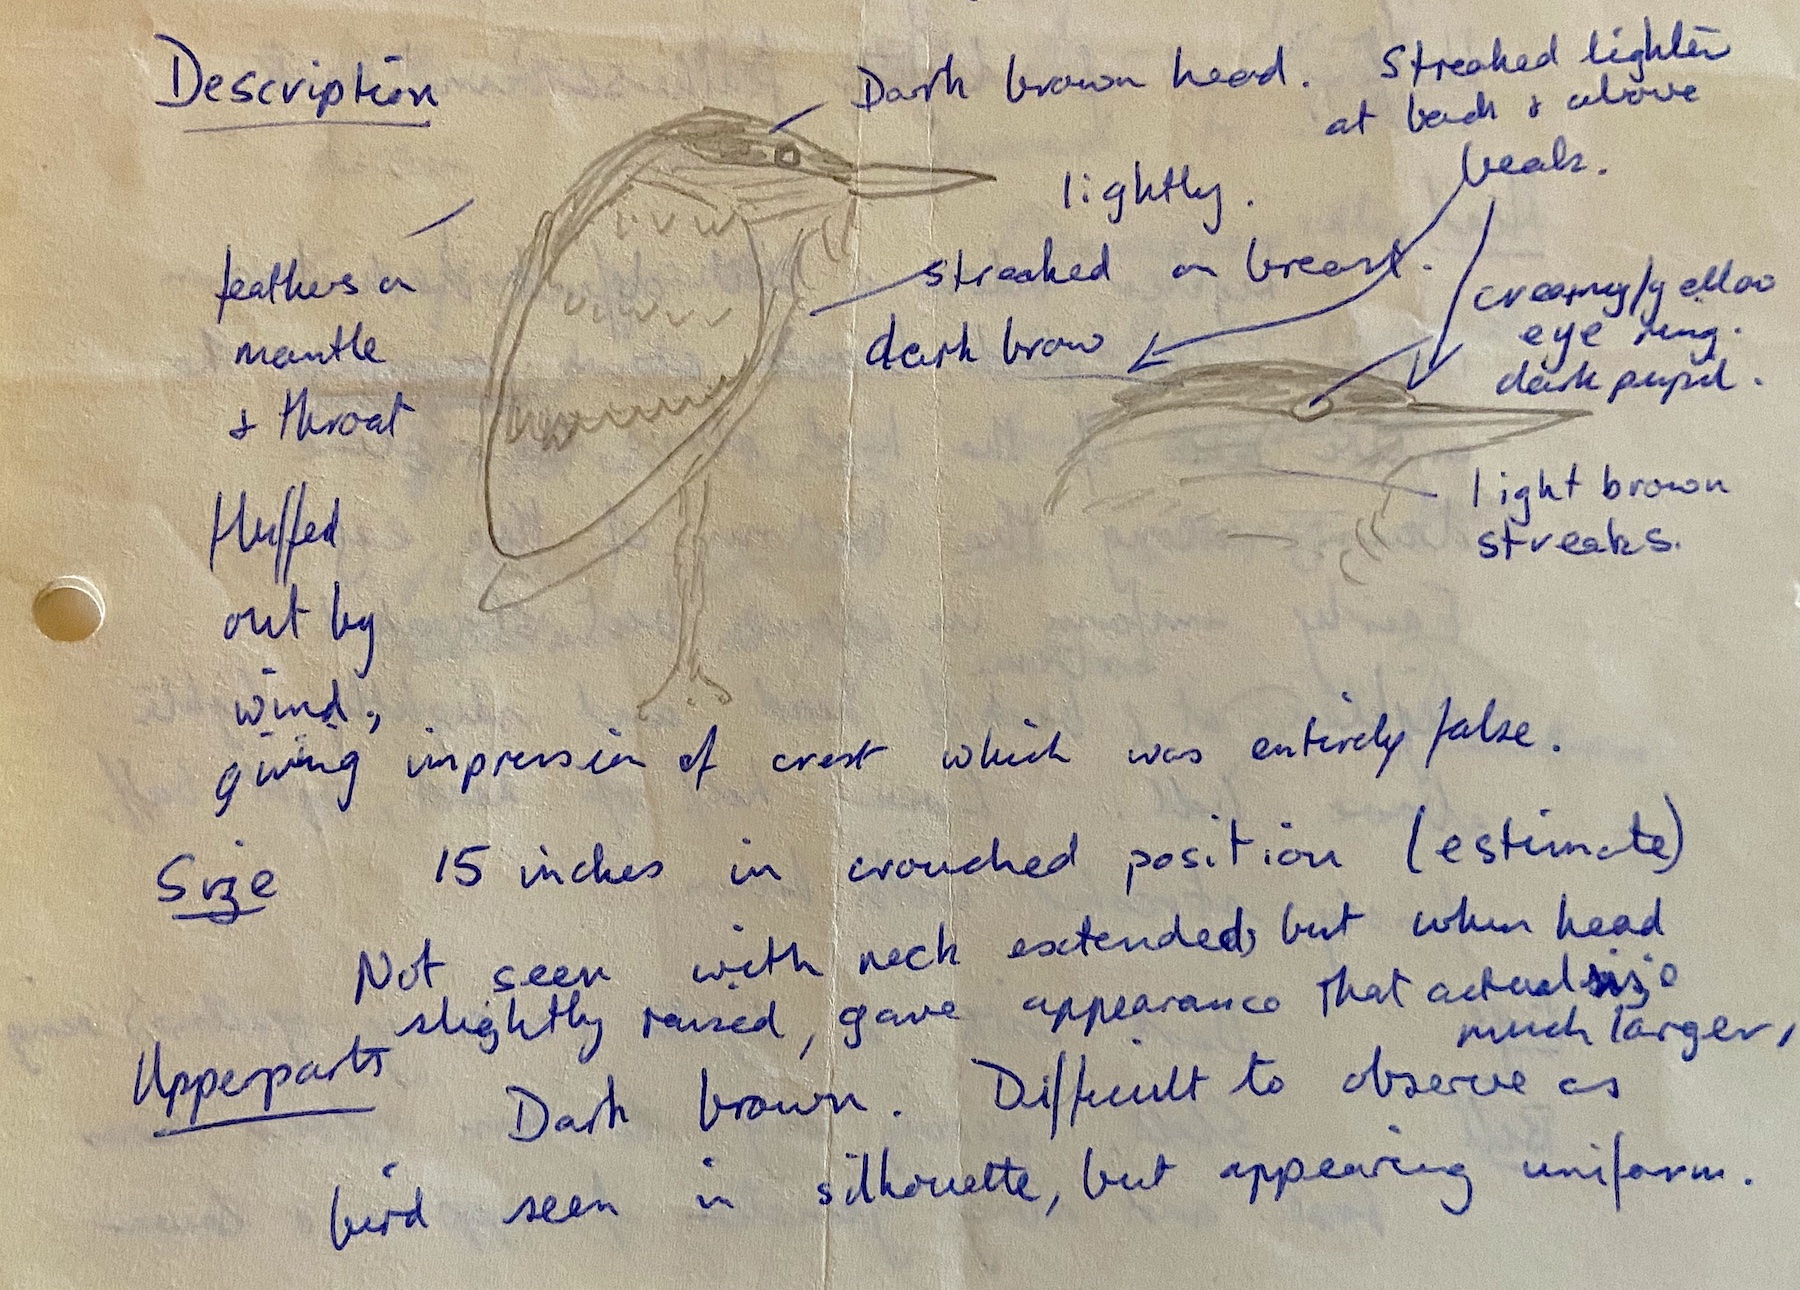 Description
Dark brown head. Streaked lighter
at back & above
beak.
lightly.
streaked on breast.
dark brow
creamy/yellow
eye ring.
dark pupil.
light brown
streaks.
feathers on
mantle
& throat
fluffed
out by
wind,
giving impression of crest which was entirely false.
Size 15 inches in crouched position (estimate)
Not seen with neck extended, but when head
slightly raised, gave appearance that actual size
much larger,
Upperparts
Dark brown. Difficult to observe as
bird seen in silhouette, but appearing uniform.